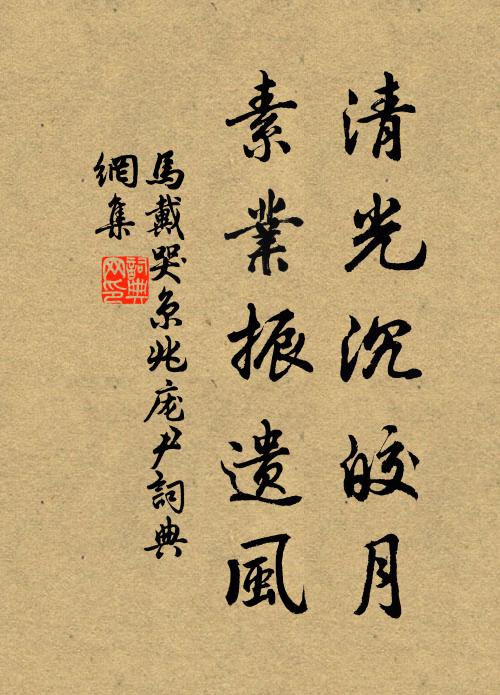 清光沉皎月
素業振遺風
馬戴哭京兆庞尹詞典
網集
詞典
网印